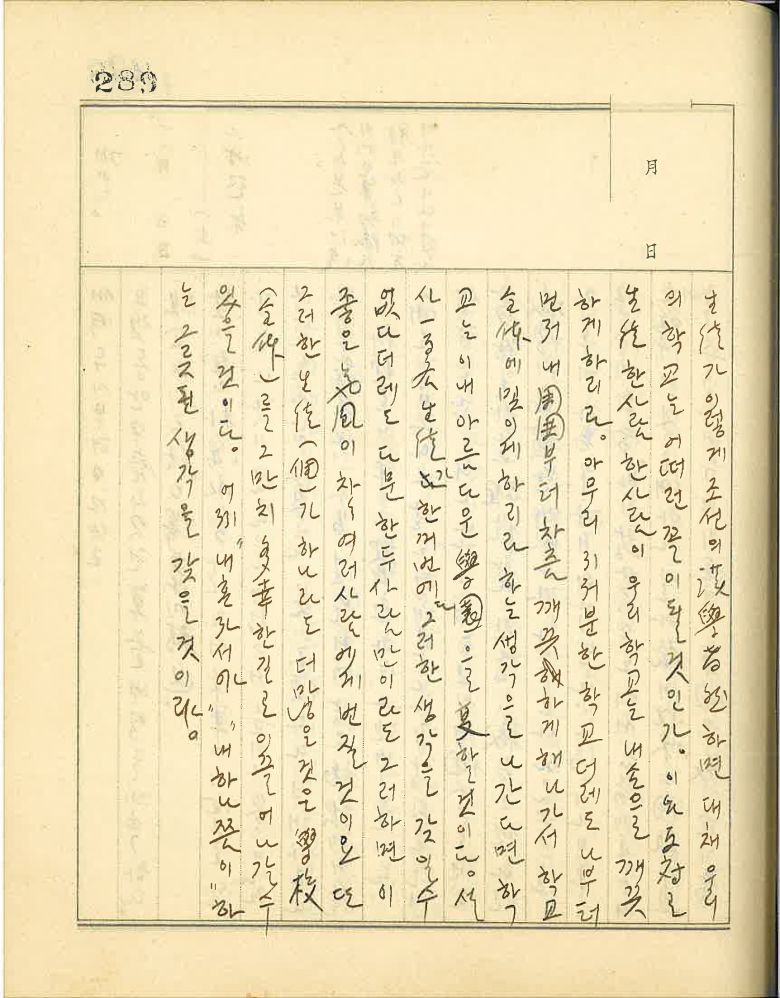 289
月
日
生徒가 이렇게 조선의 漢學者然 하면 대채 우리
의 학교는 어떠런 꼴이 될것인가. 이와 反対로
生徒 한사람 한사람이 우리 학교를 내손으로 깨끗
하게 하리라. 아무리 지저분한 학교더레도 나부터
먼저 내 周囲부터 차츰 깨끗하게 해나가서 학교
全体에 및이게하리라 하는 생각으로 나간다면 학
교는 이내 아름다운 學園으로 変할것이다. 설
사 一百名 生徒가 한꺼번에 다 그러한 생각을 갖일수
없다더레도 다문 한두사람만이라도 그러하면 이
좋은 気風이 차차 여러사람에게 번질 것이요 또
그러한 生徒(個)가 하나라도 더 많을것은 學校
(全体)를 그만치 多幸한길로 이끌어 나갈수
있을 것이다. 어찌 "내혼자서야" "내하나쯤이" 하
는 글릇된 생각을 갖을것이랴.